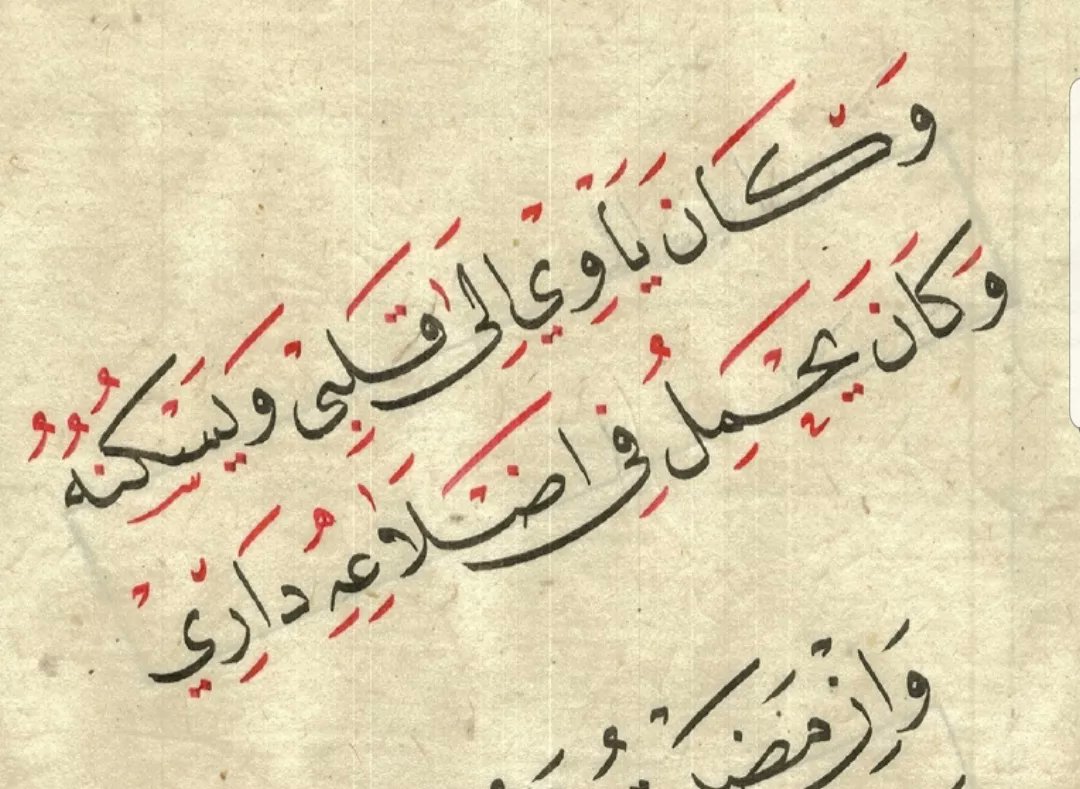 وَكَانَ يَأوِيْ اِلَى قَلْبِيْ وَيَسْكُنُهُ
وَكَانَ يَحْمِلُ فِى اضْلَاعِهِ دَارِيْ
وَاِنْ